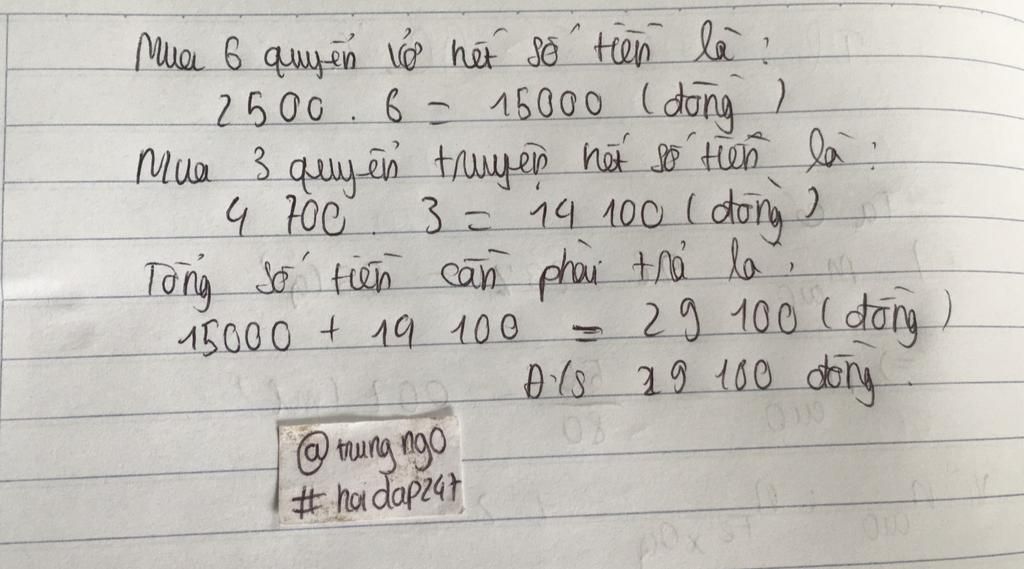 Mua 6 quyển vở hết số tiền là :
2500 . 6 = 15000 (đồng)
Mua 3 quyển truyện hết số tiền là :
4 700 . 3 = 14 100 (đồng)
Tổng số tiền cần phải trả là :
15000 + 14 100 = 29 100 (đồng)
Đ/s 29 100 đồng.
@trung ngo
# hoidap247